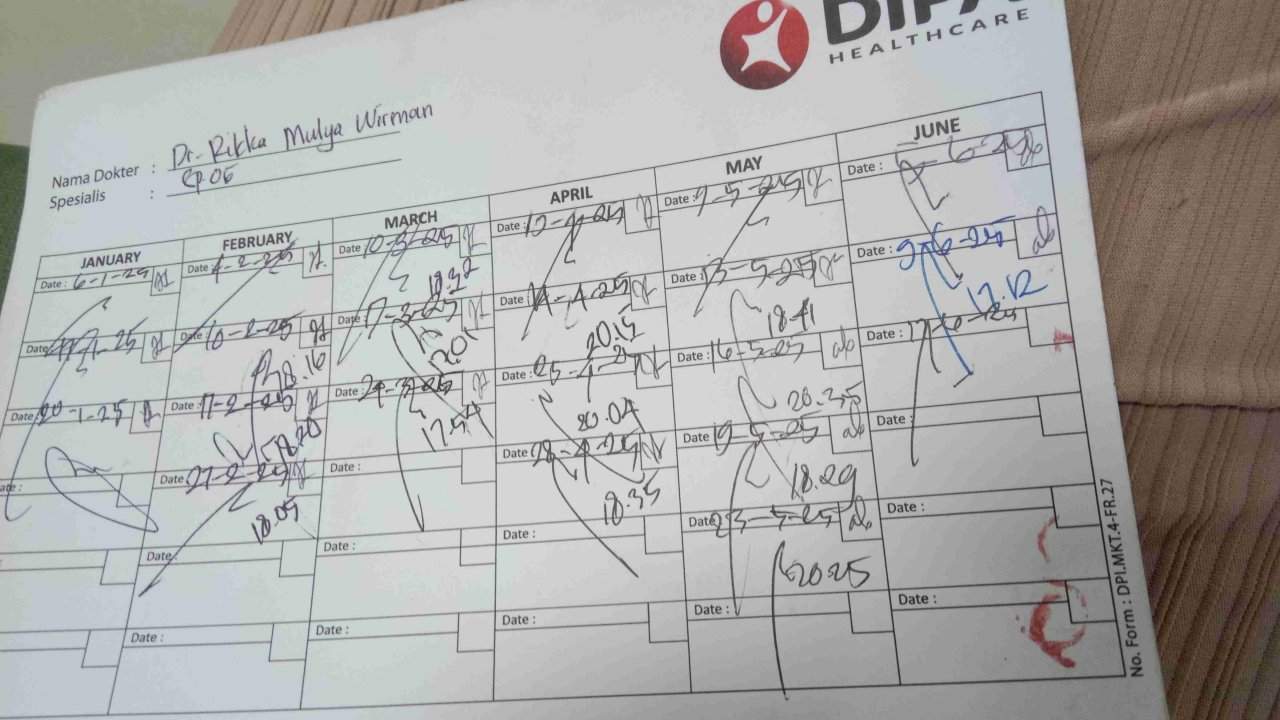 HEALTHCARE
Nama Dokter : Dr. Rikka Mulya Wirman
Spesialis :
JANUARY FEBRUARY MARCH APRIL MAY JUNE
Date : 6-1-25 Date 4-2-25 Date : 10-3-25 Date : Date : 9-5-25 Date :
18.32
Date 10-2-25 Date : 17-3-25 Date : 14-4-25 Date : 13-5-25 Date : 9-6-25
18.16 20.15 18.41 17.12
Date : 20-1-25 Date : 17-2-25 Date : 24-3-25 Date : 25-4-25 Date : 16-5-25 Date :
18.20 17.54 20.04 20.35
Date 27-2-25 Date : Date : 28-4-25 Date : 19-5-25 Date :
18.05 18.35 18.29
Date Date : Date : Date 23-5-25 Date :
20.25
Date : Date : Date : Date :
No. Form : DPI.MKT.4-FR.27